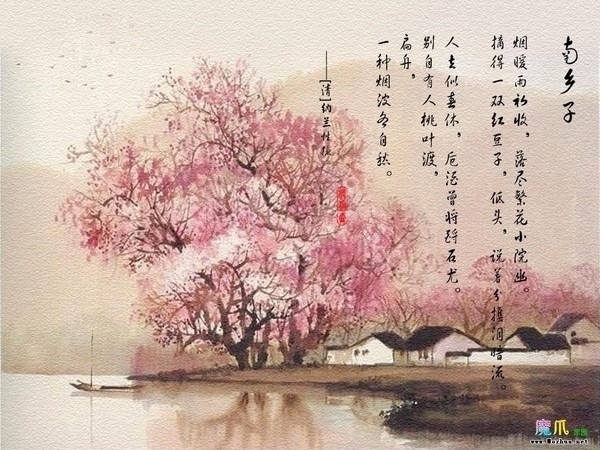 南乡子
烟暖雨初收，落尽繁花小院幽。
摘得一双红豆子，低头，说着分携泪暗流。
人去似春休，卮酒曾将酹石尤。
别自有人桃叶渡，
扁舟，
一种烟波各自愁。
——[清]纳兰性德
魔爪
www.Mozhua.net